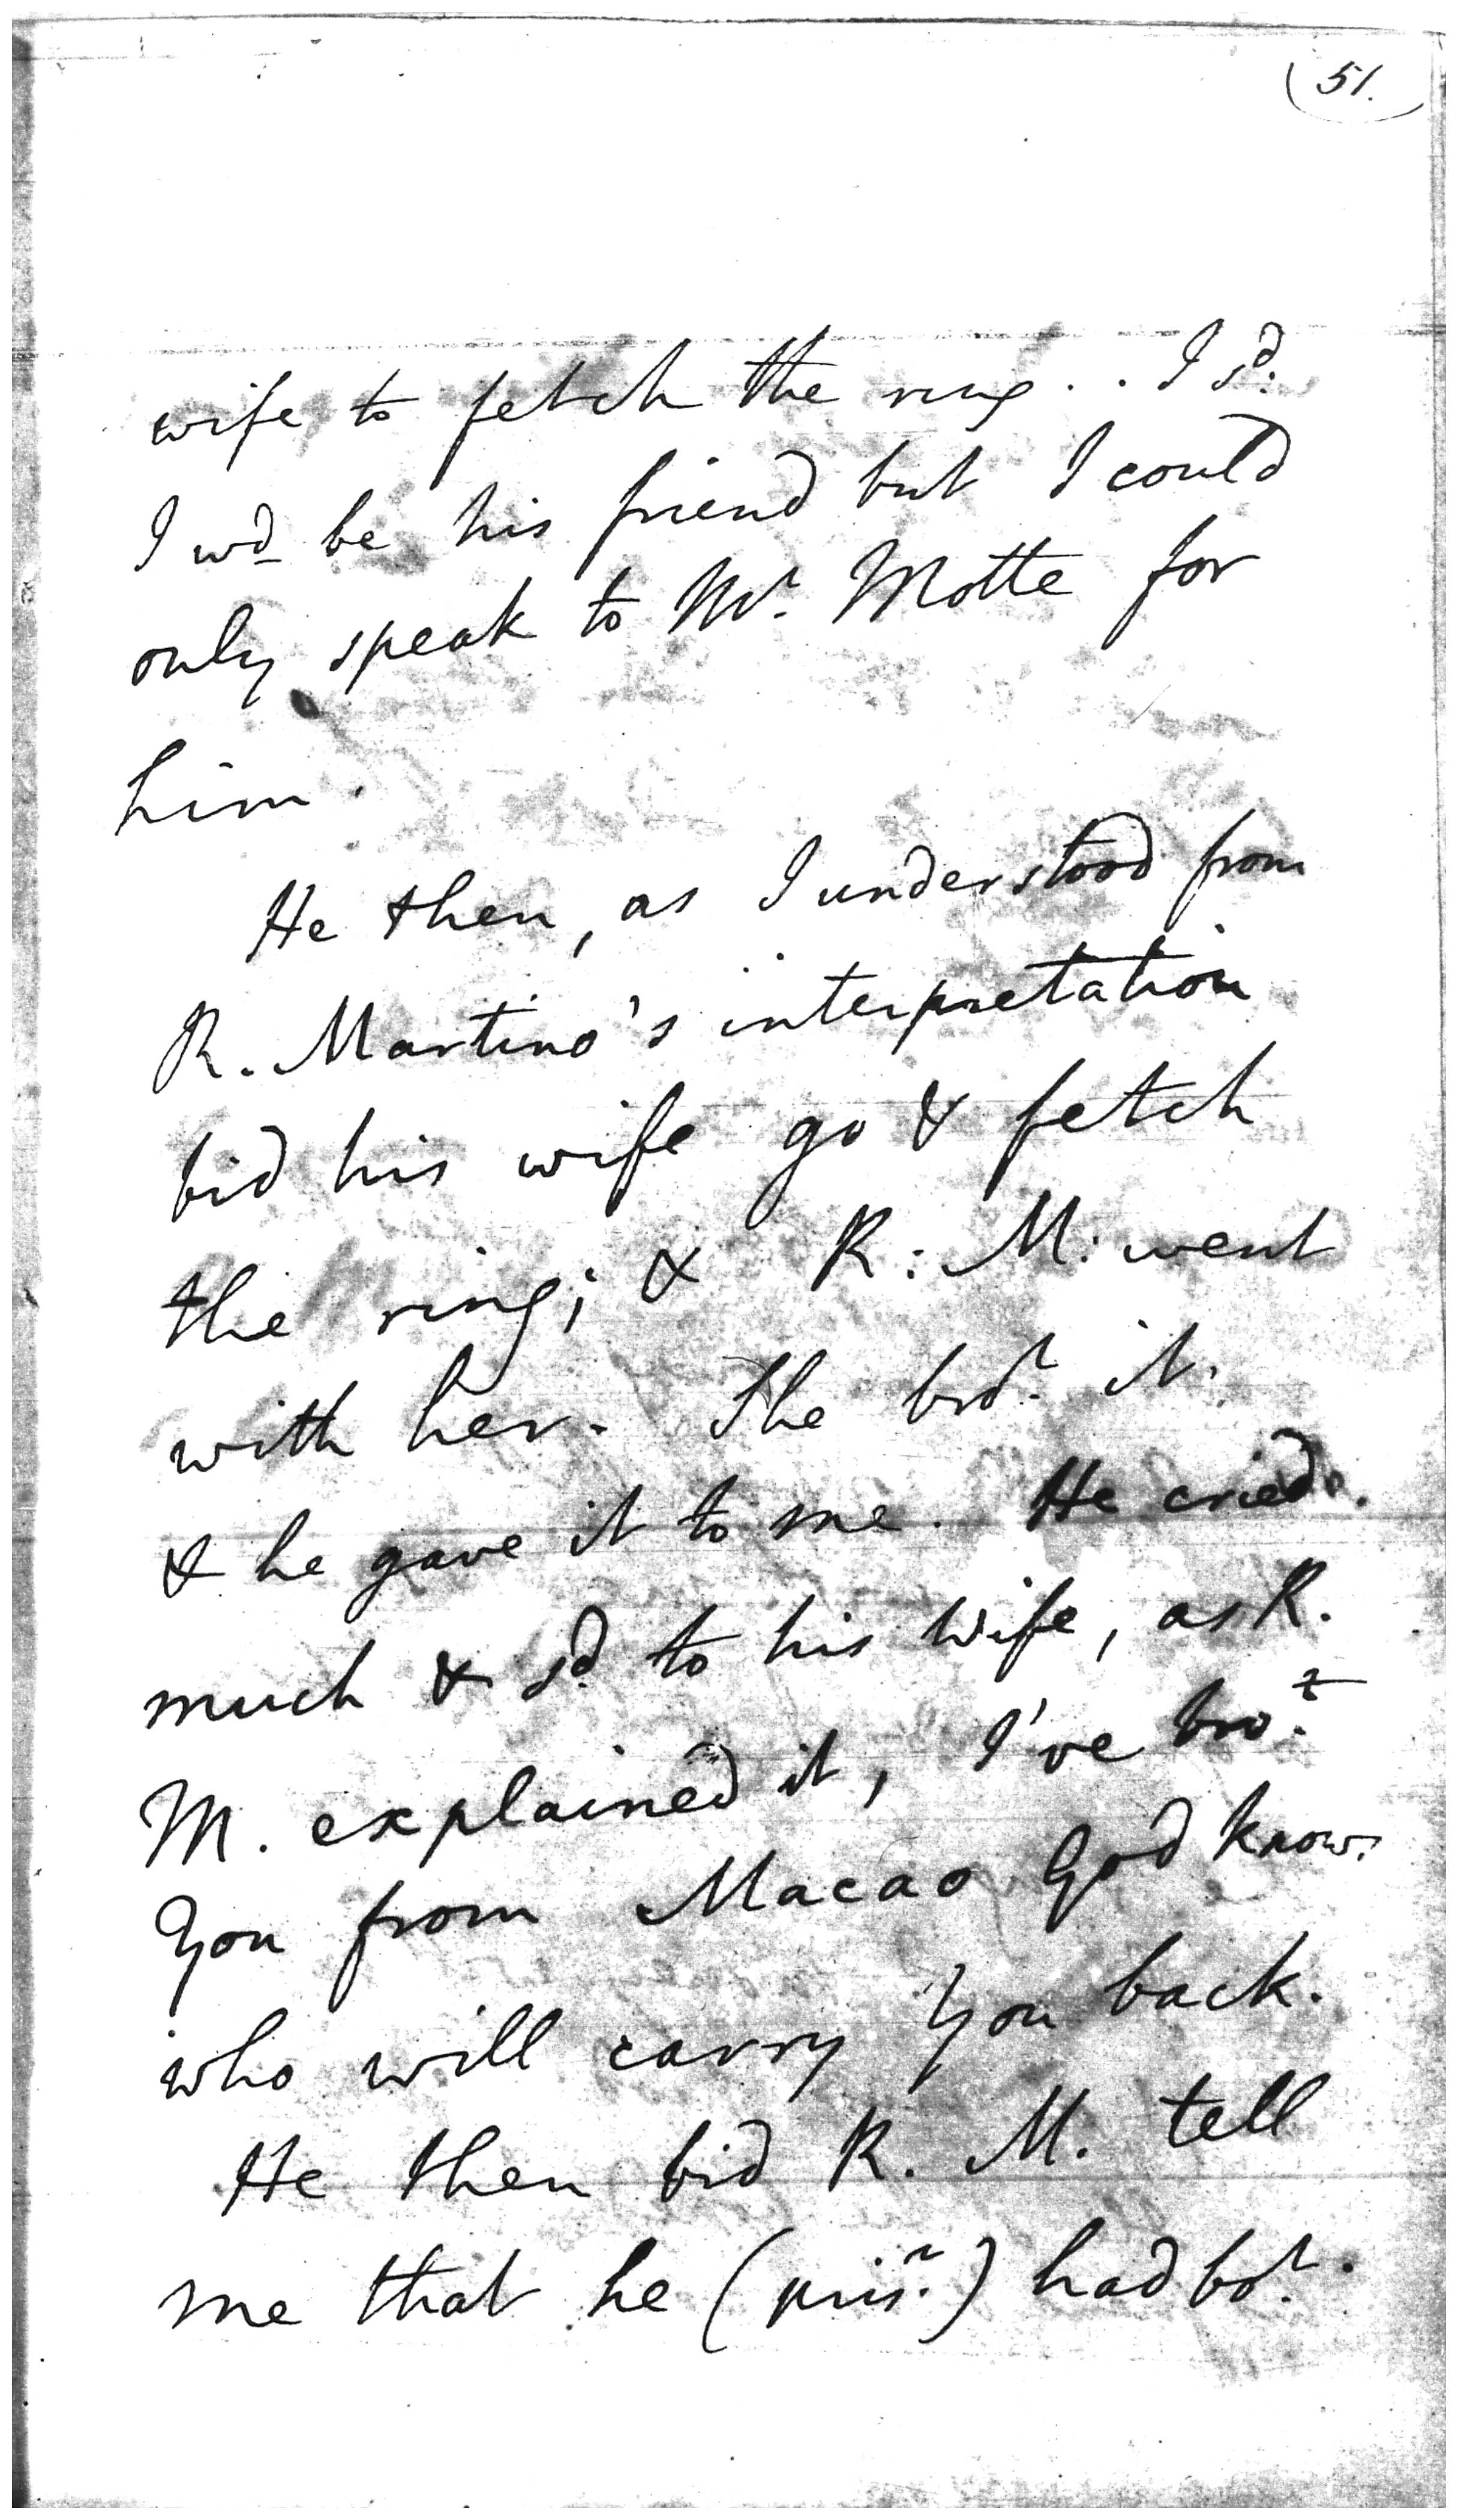 (51.
wife to fetch the ring . . I sd.
I wd be his friend but I could
only speak to Mr. Motte for
him.
He then, as I understood from
R. Martino's interpretation
bid his wife go & fetch
the ring; & R: M: went
with her. She brot. it.
& he gave it to me. He cried
much & sd. to his wife, as R.
M. explained it, I've brot.
You from Macao God knows
who will carry You back.
He then bid R. M. tell
me that he (prisr.) had bot.